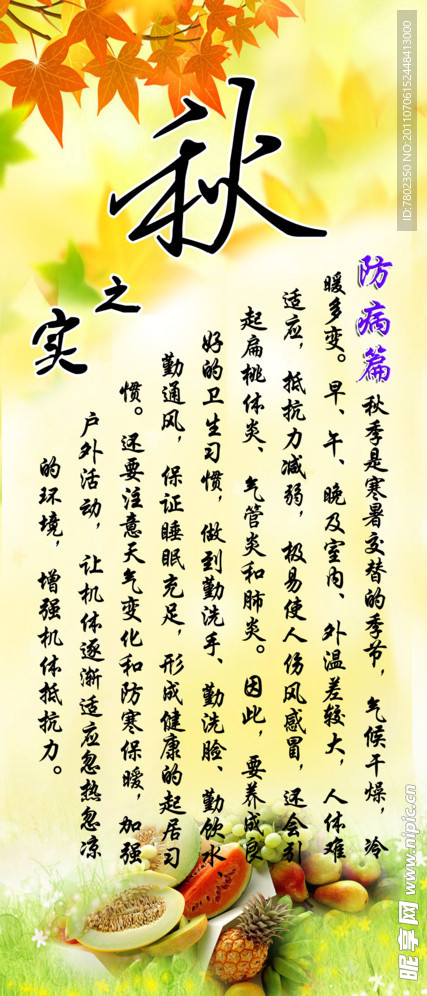 秋
之
实
防病篇
秋季是寒暑交替的季节，气候干燥，冷
暖多变。早、午、晚及室内、外温差较大，人体难
适应，抵抗力减弱，极易使人伤风感冒，还会引
起扁桃体炎、气管炎和肺炎。因此，要养成良
好的卫生习惯，做到勤洗手、勤洗脸、勤饮水
勤通风，保证睡眠充足，形成健康的起居习
惯。还要注意天气变化和防寒保暖，加强
户外活动，让机体逐渐适应忽热忽凉
的环境，增强机体抵抗力。
ID:7802350 NO:20110706152448413000
昵享网 www.nipic.cn